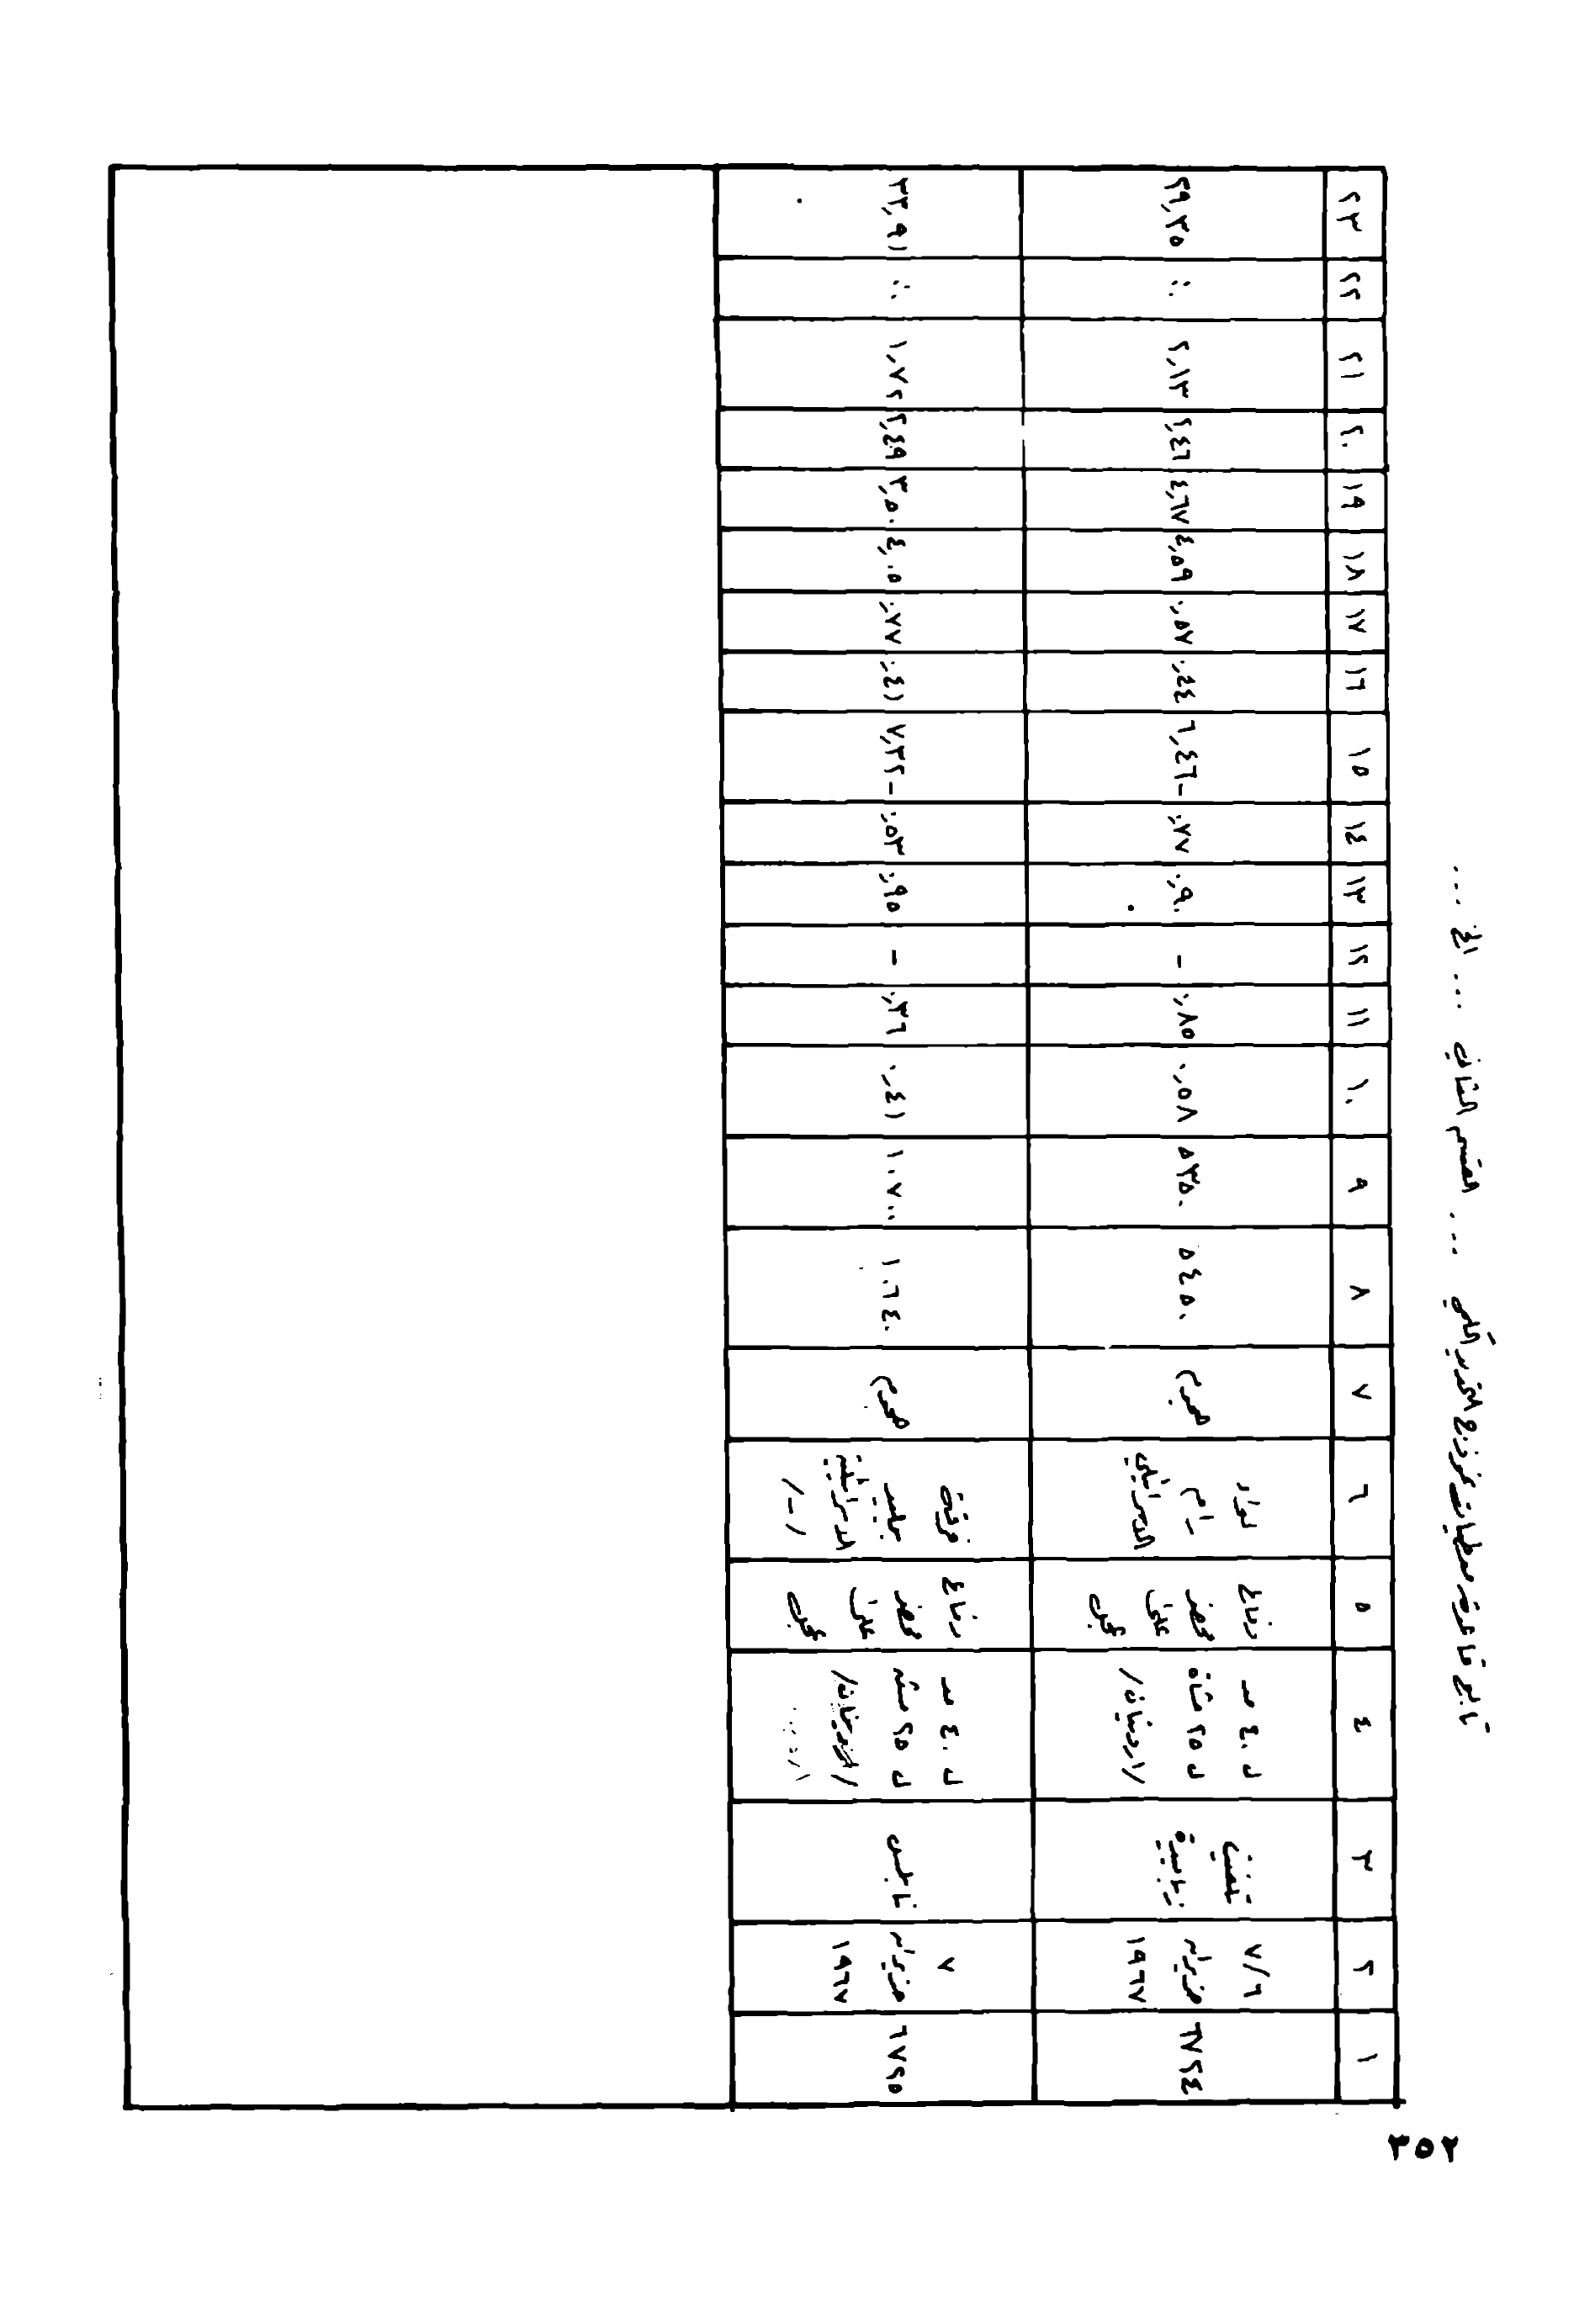 تابع قاعدة معطيات نموذج التحديد الكمي ... القسم الثاني ... الخ ...
١ ٢ ٣ ٤ ٥ ٦ ٧ ٨ ٩ ١٠ ١١ ١٢ ١٣ ١٤ ١٥ ١٦ ١٧ ١٨ ١٩ ٢٠ ٢١ ٢٢ ٢٣
٦٧٢٤
٧/٦
حزيران
١٩٦٧
تلفيت
زبابدة
ل ٤٠ مد
ل ٢٥ مشاة
/اردنيان/
دفاع
محضر
على
عجل
لواء
رام
الاسرائيلي
هجوم
٥٤٥٠
٥٣٥٠
٠,٥٨
٠,٨٥
-
٠,٩٠
٠,٧٧
٦,٤٦-
٠,٤٤
٠,٥٧
٤,٥٩
٤,٦٧
٢,٤٦
٢,١٣
∴
٢٩,٣٥
٦٧٢٥
٧
حزيران
١٩٦٧
نابلس
ل ٤٠ مد
ل ٢٥ مشاة
دفاع
محضر
على
عجل
فرقة
بيليد
الاسرائيلية
/-/
هجوم
١٠٦٤٠
١٠٧٠٠
٠,٤١
٠,٣٦
-
٠,٩٥
٠,٥٣
٧,٣٢-
٠,٤١
٠,٧٧
٤,٠٥
٣,٥٠
٢,٤٩
١,٧٢
∴
٣٣,٩١
٣٥٢